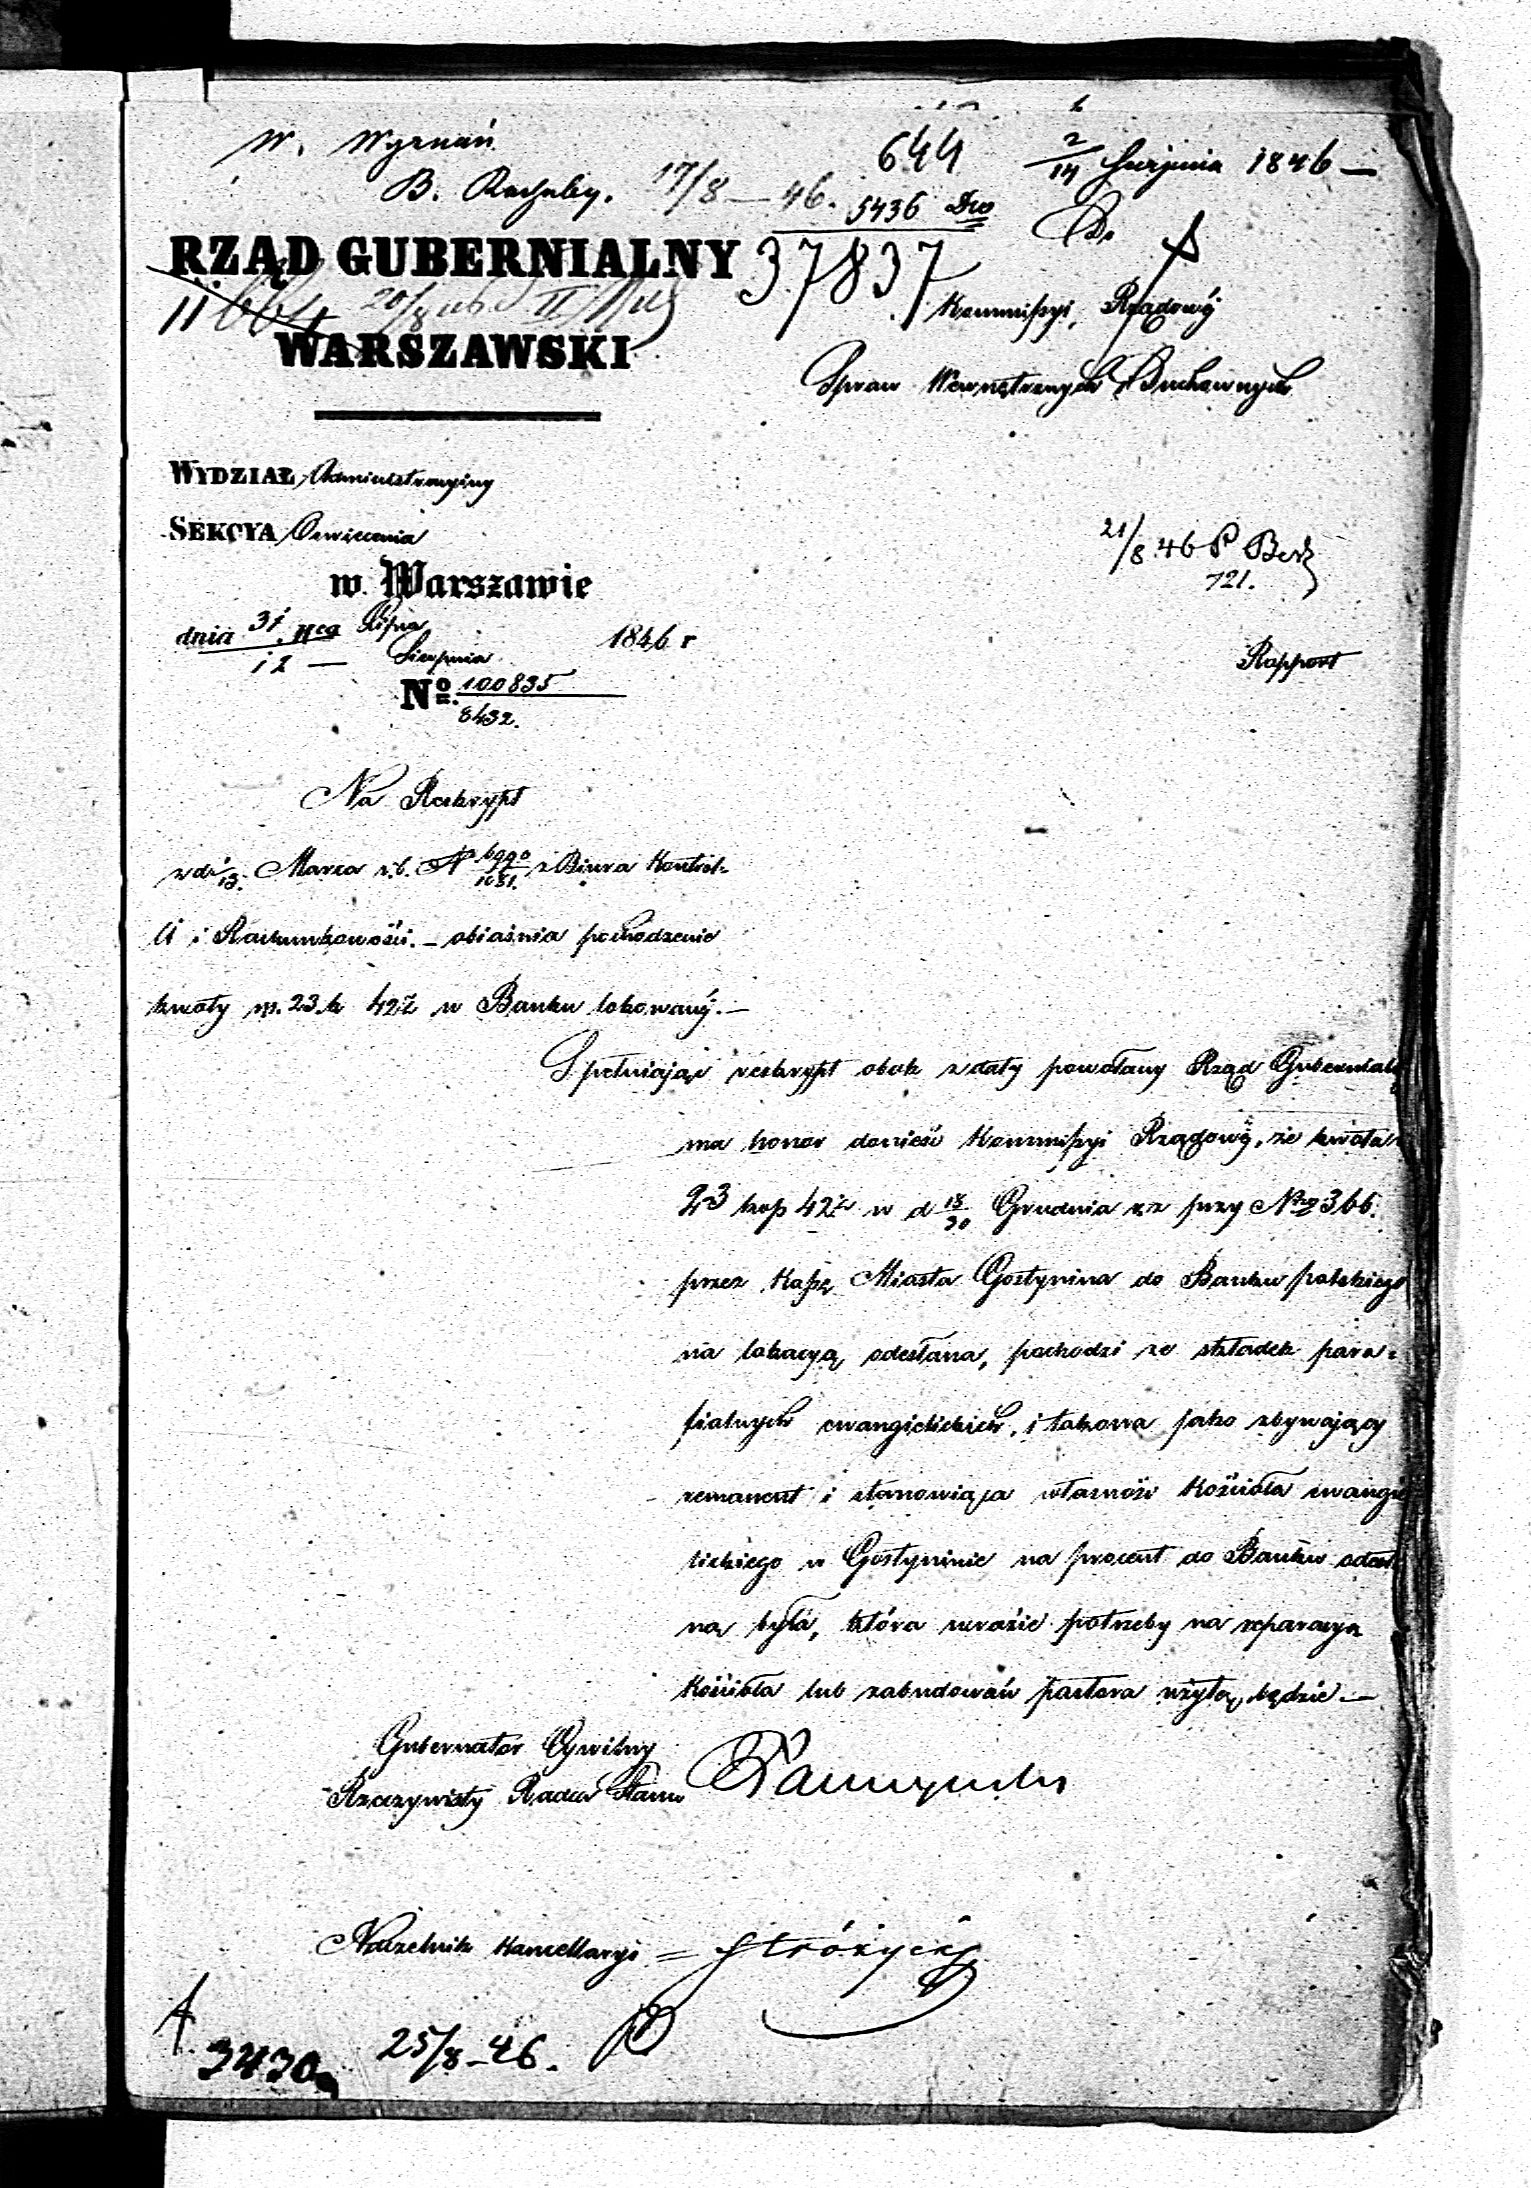 W. Wyznań
644
2/14 Sierpnia 1846 —
B. Rachuby. 17/8 — 46.
5436 Dwo
37837
Do
RZĄD GUBERNIALNY
WARSZAWSKI
Kommissyi Rządowéj
Spraw Wewnętrznych i Duchownych
WYDZIAŁ Administracyiny
SEKCYA Oswiecenia
w Warszawie
21/8 46
121.
dnia 31 Lipca
12 — Sierpnia 1846 r
No. 100835
8432.
Rapport
Na Reskrypt
z Biura Kontrol-
li i Rachunkowości. — obiaśnia pochodzenie
kwoty rs. 23. k 42½ w Banku lokowanéj. —
Spełniając reskrypt obok z daty powołany Rząd Gubernialn
ma honor donieść Kommissyi Rządowéj, że kwota
23 kop 42½ w d 18/30 Grudnia r.z przy Nro 366.
przez Kassę Miasta Gostynina do Banku polskiego
na lokacyą odesłana, pochodzi ze składek para-
fialnych ewangielickich, i takowa jako zbywający
remanent i stanowiąca własność Kościoła ewangie
lickiego w Gostyninie na procent do Banku odesła
na była, która w razie potrzeby na reparacyą
Kościoła lub zabudowań pastora użytą będzie. —
Gubernator Cywilny
Rzeczywisty Radca Stanu
Naczelnik Kancellaryi = Stróżycki
3430
25/8 – 46.